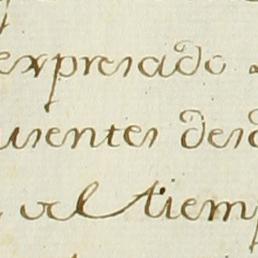 expresado
uientes desd
el tiemp